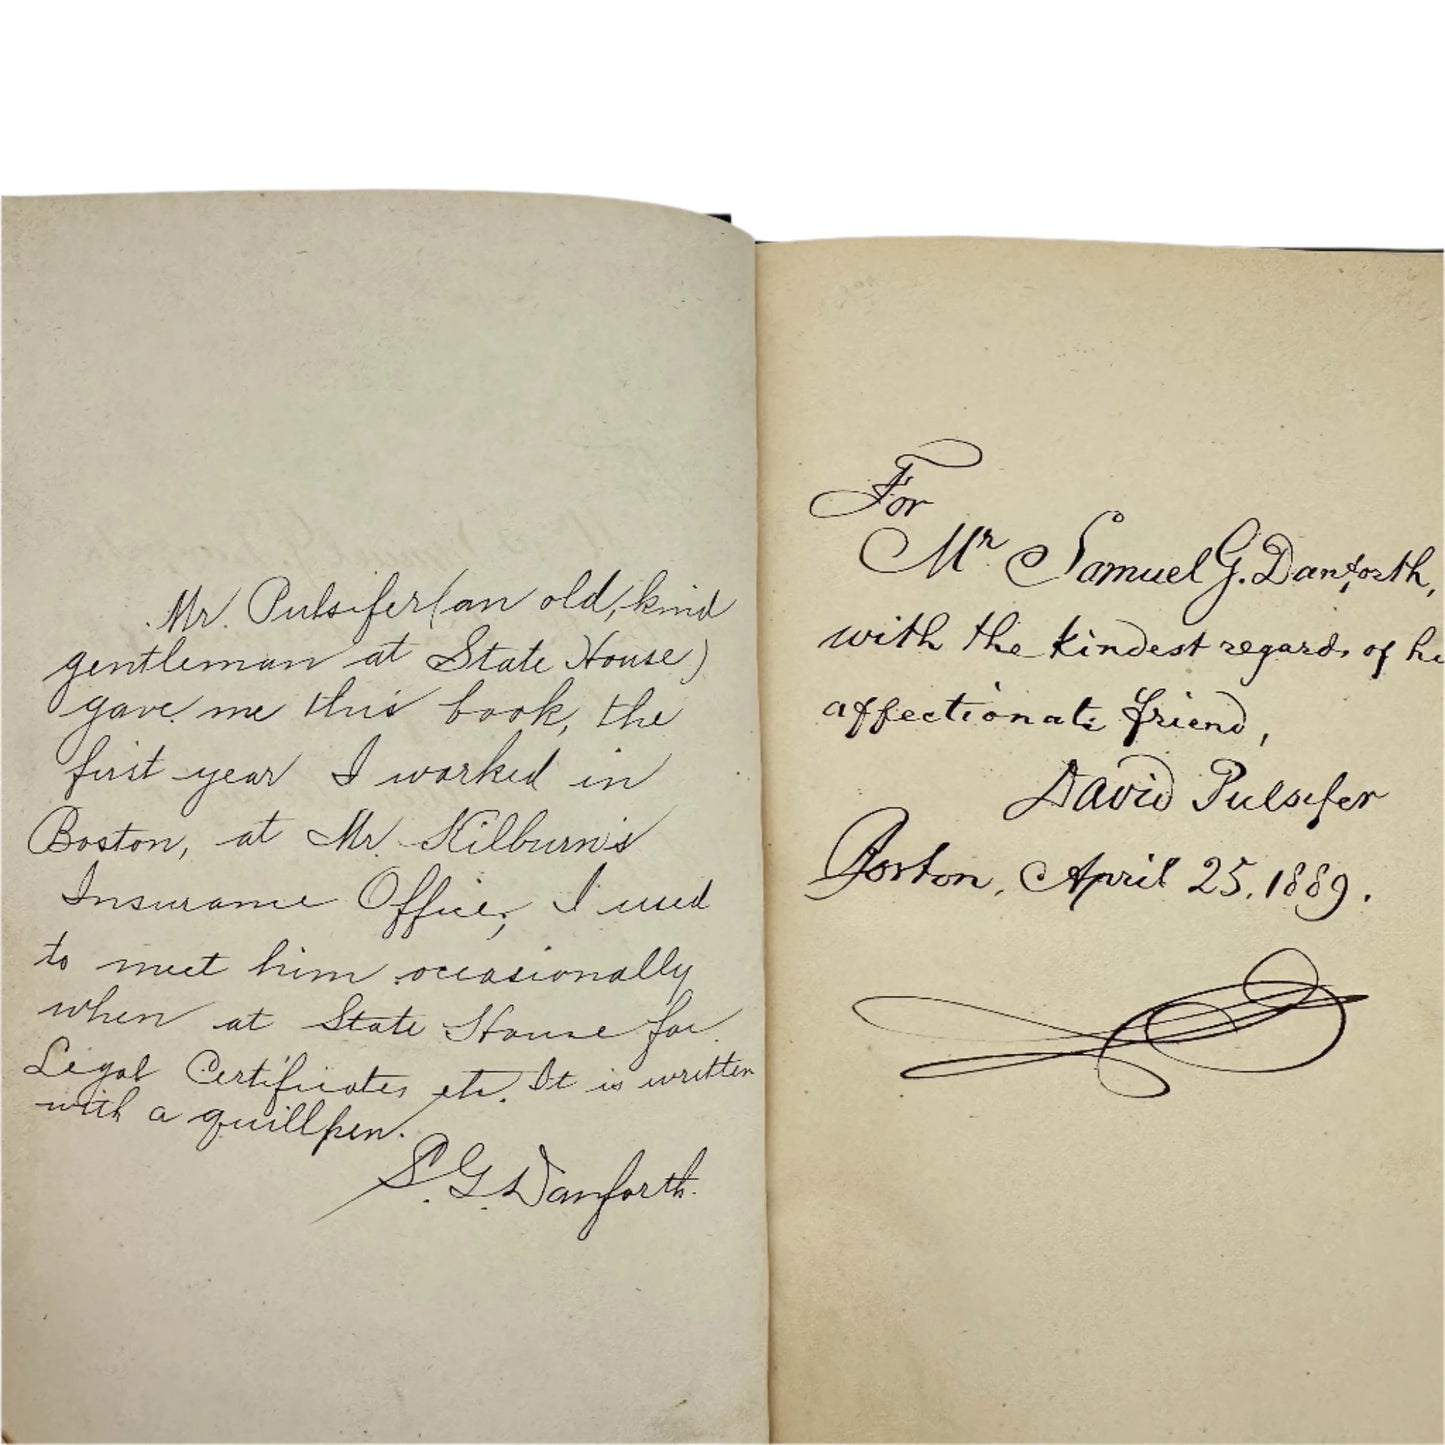 Mr. Pulsifer (an old, kind
gentleman at State House)
gave me this book, the
first year I worked in
Boston, at Mr. Kilburn's
Insurance Office, I used
to meet him occasionally
when at State House for
Legal Certificates etc. It is written
with a quill pen.
S. G. Danforth.
For
Mr. Samuel G. Danforth,
with the kindest regards of hi
affectionate friend,
David Pulsifer
Boston, April 25, 1889.